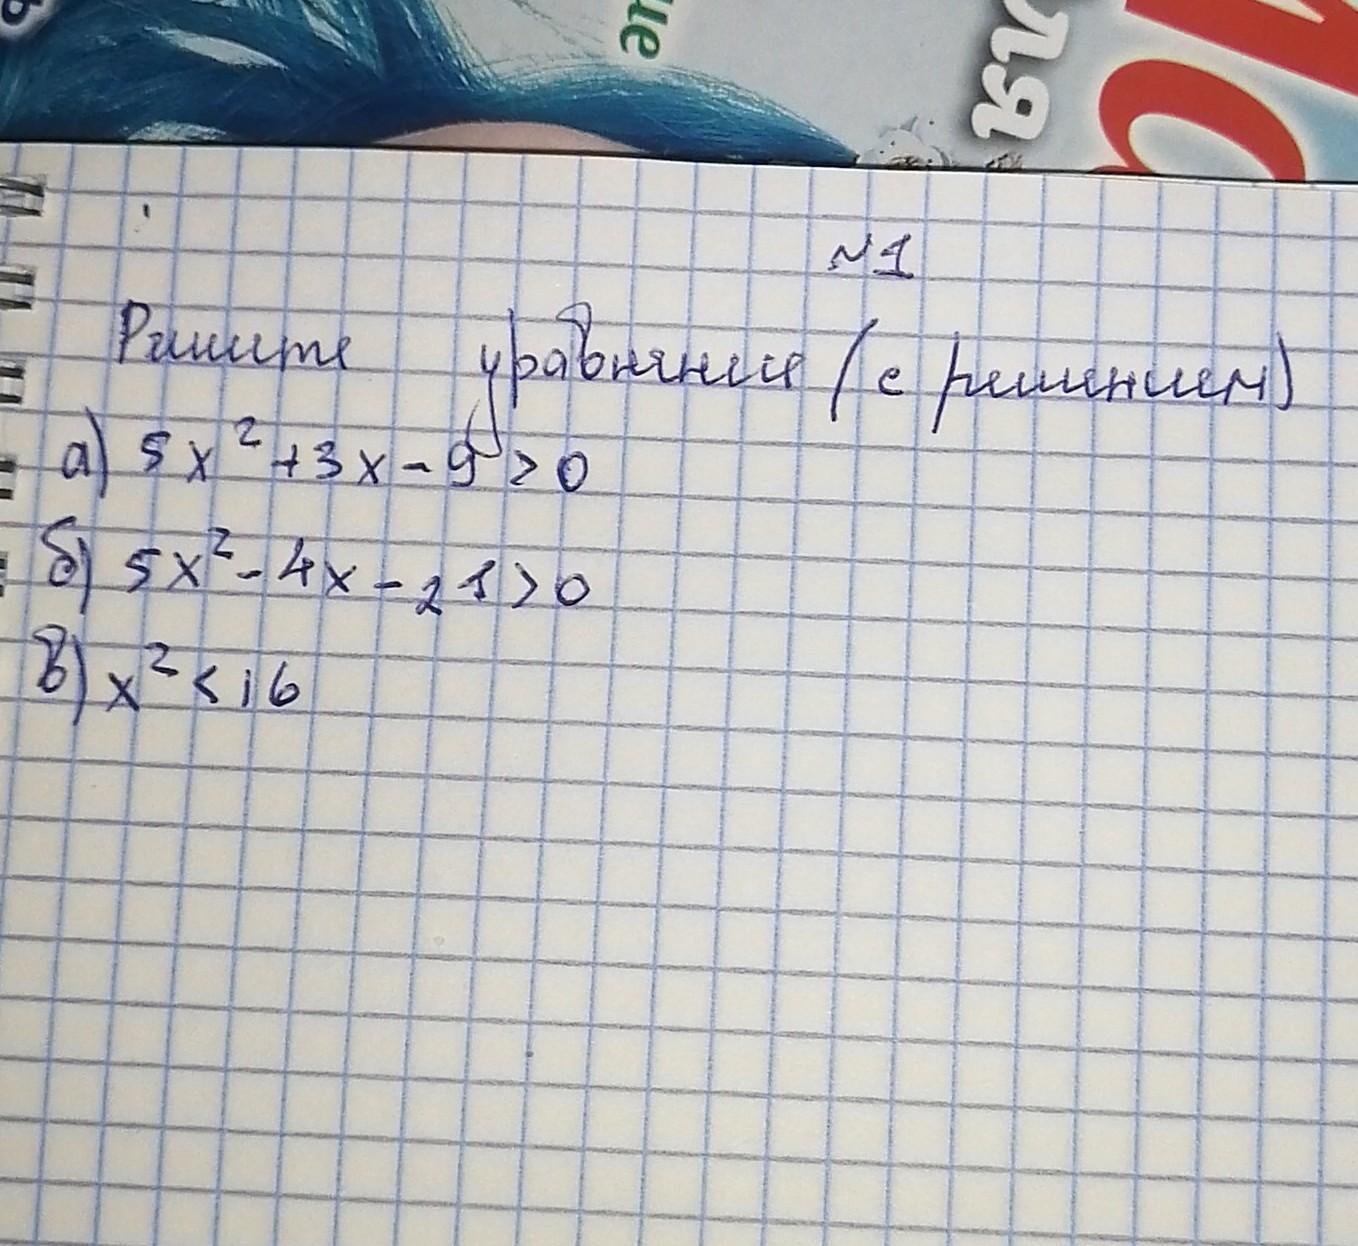 ие
ля
№1
Решите уравнения (с решением)
а) 5x² + 3x - 9 > 0
б) 5x² - 4x - 21 > 0
в) x² < 16